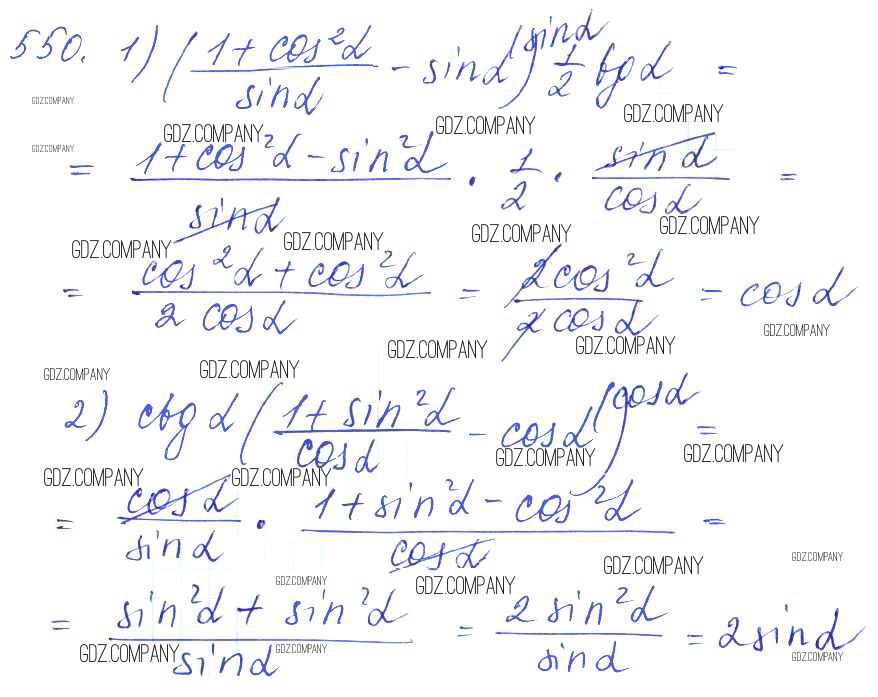 550. 1) (1 + cos²α / sinα − sinα)^(sinα 1/2 tgα =
GDZ.COMPANY
GDZ.COMPANY GDZ.COMPANY GDZ.COMPANY
GDZ.COMPANY
= 1 + cos²α − sin²α / sinα · 1/2 · sinα / cosα =
GDZ.COMPANY GDZ.COMPANY GDZ.COMPANY GDZ.COMPANY
= cos²α + cos²α / 2 cosα = 2cos²α / 2cosα = cosα
GDZ.COMPANY GDZ.COMPANY
GDZ.COMPANY
GDZ.COMPANY GDZ.COMPANY
2) ctgα (1 + sin²α / cosα − cosα)^(cosα =
GDZ.COMPANY GDZ.COMPANY
GDZ.COMPANY GDZ.COMPANY
= cosα / sinα · 1 + sin²α − cos²α / cosα =
GDZ.COMPANY GDZ.COMPANY
GDZ.COMPANY GDZ.COMPANY
= sin²α + sin²α / sinα = 2 sin²α / sinα = 2sinα
GDZ.COMPANY GDZ.COMPANY GDZ.COMPANY